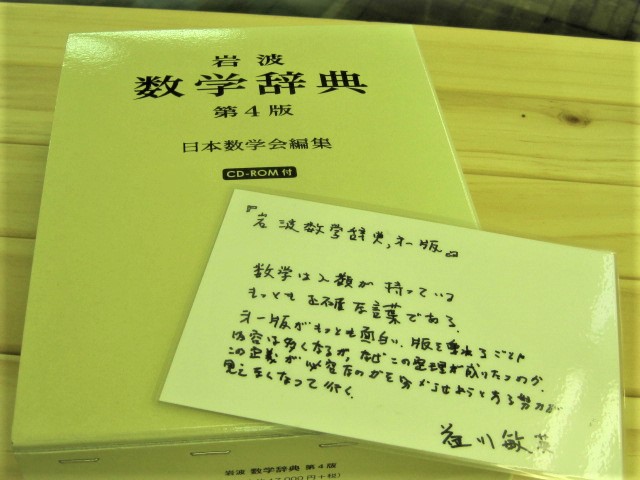 岩波
数学辞典
第4版
日本数学会編集
CD-ROM付
『岩波数学辞典,才一版』
数学は人類が持っている
もっとも正確な言葉である.
才一版がもっとも面白い.版を重ねるごとに
内容は多くなるが,なぜこの定理が成りたつのか.
この定義が必要なのかを分からせようとする努力が
見えなくなって行く.
川敏英
岩波 数学辞典 第4版
000円+税)